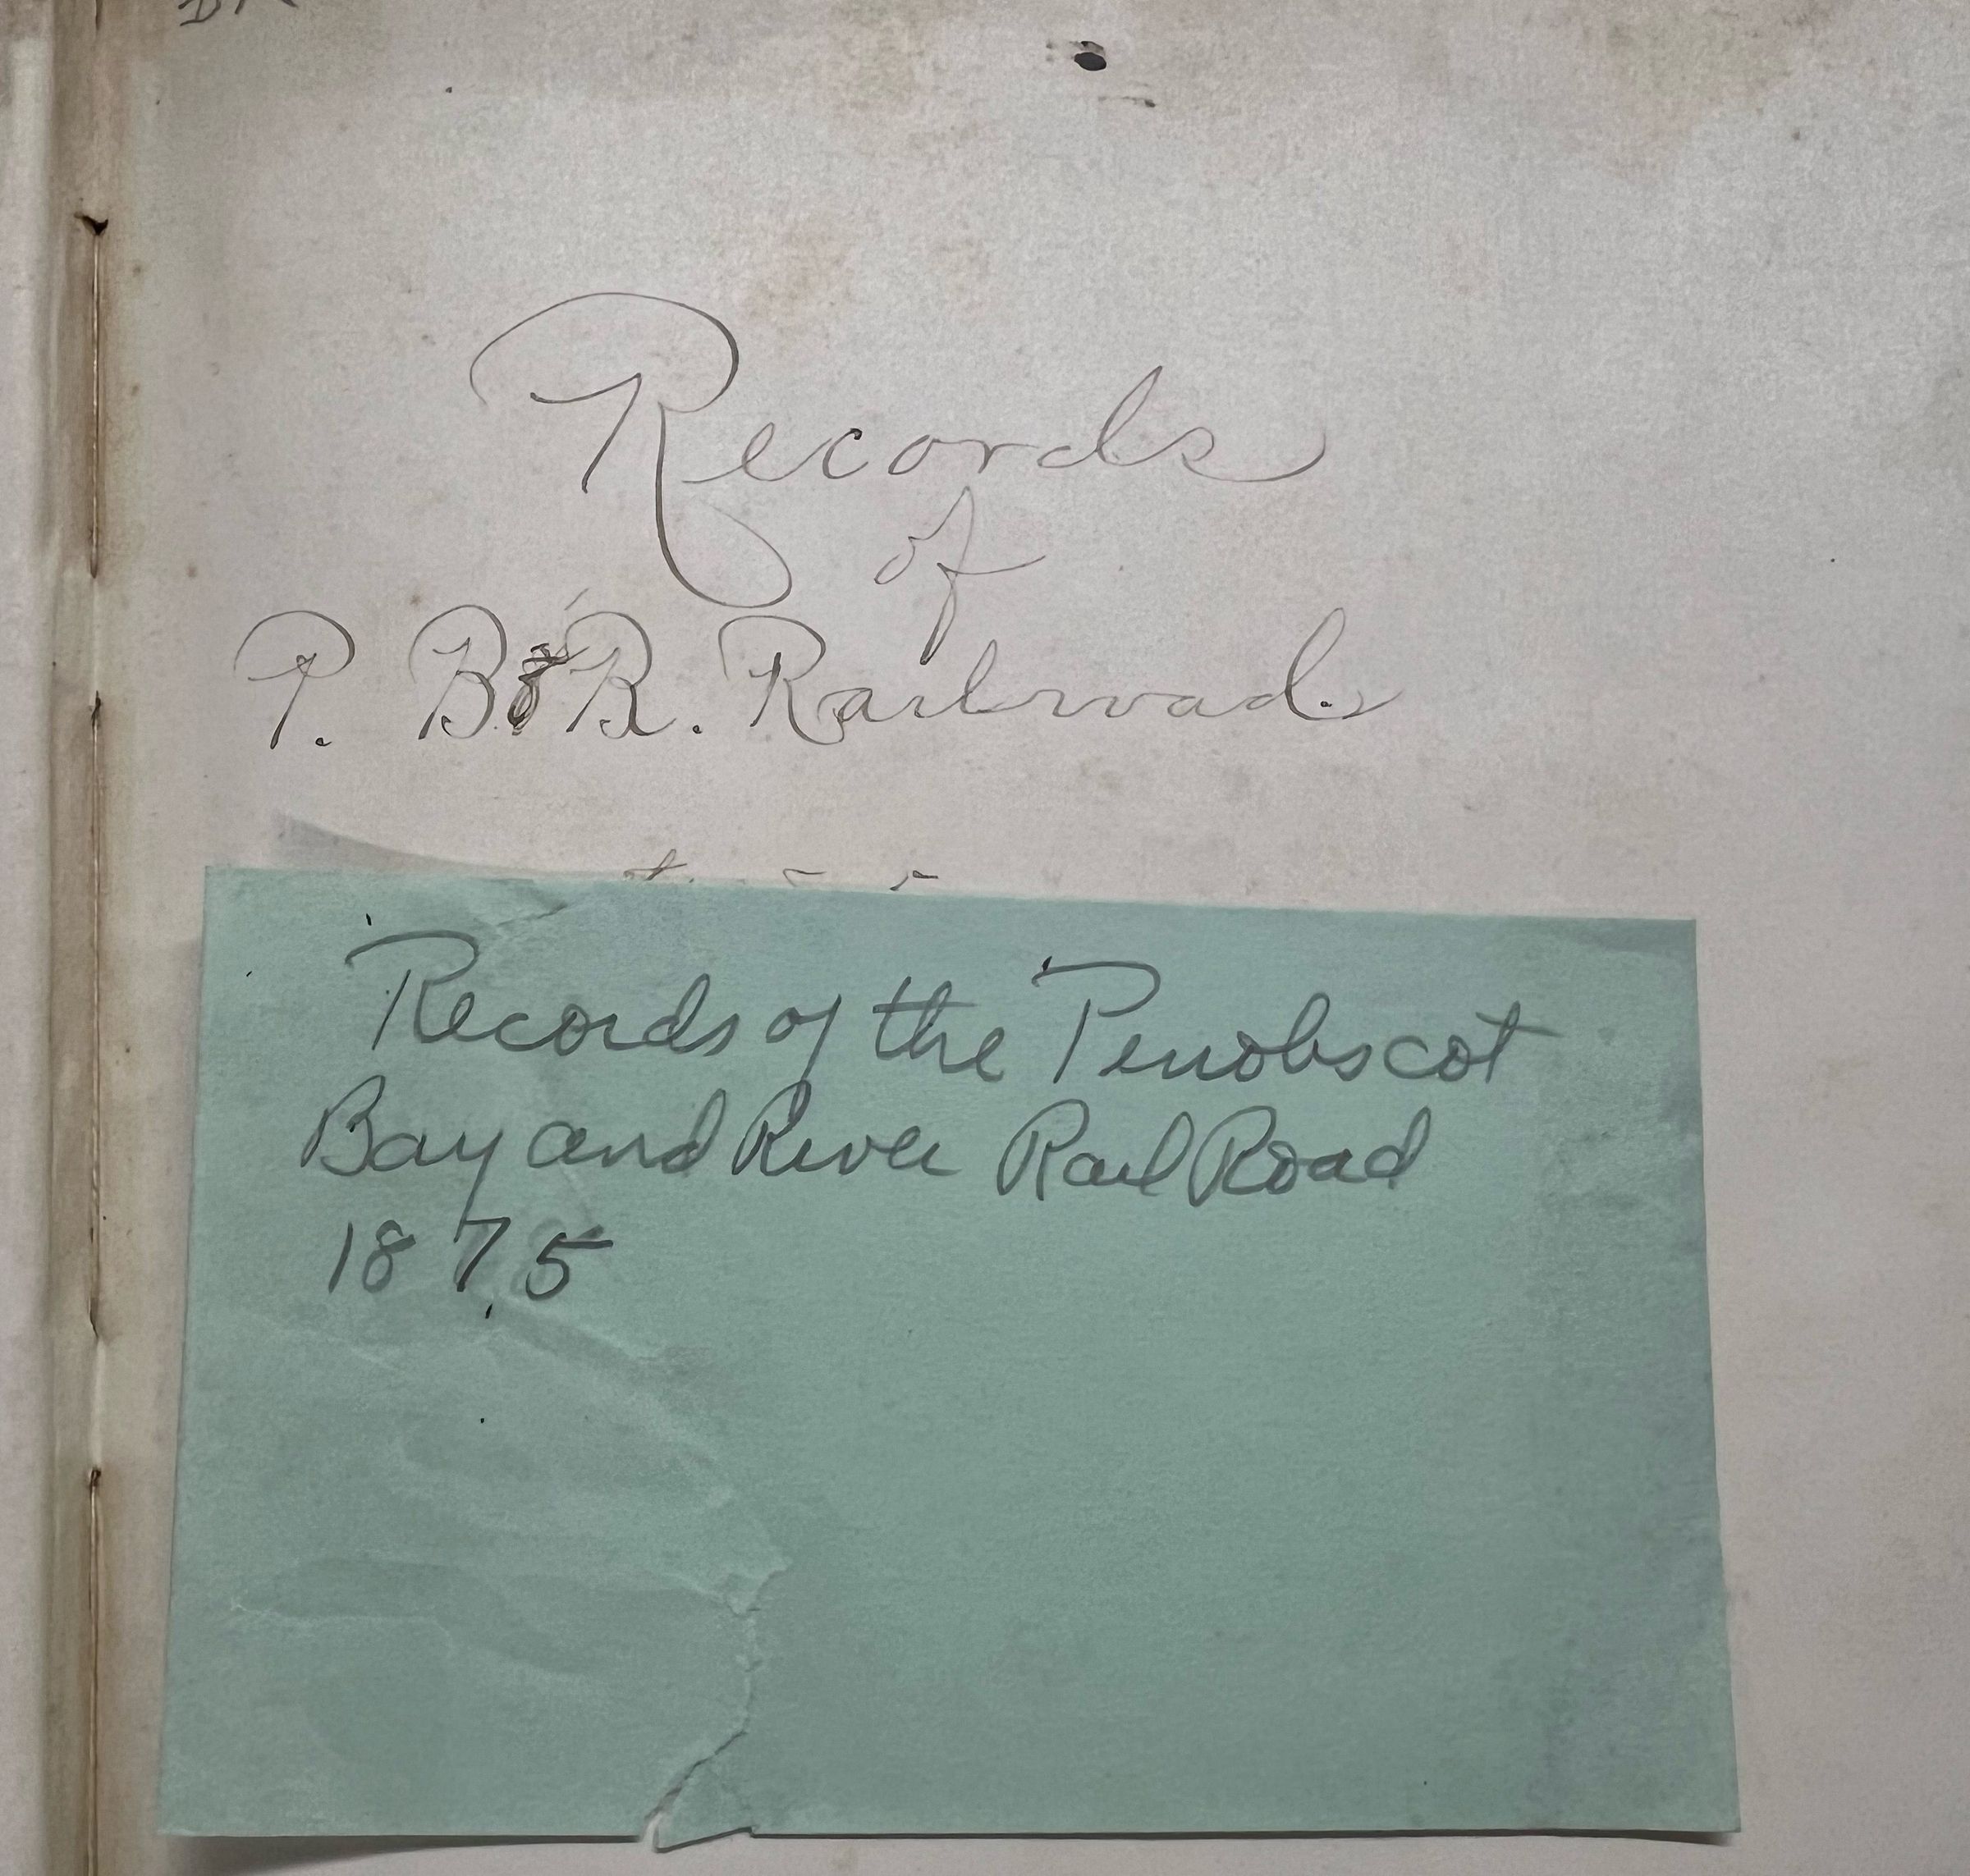 Records
of
P. B & R. Railroad.
Records of the Penobscot
Bay and River Rail Road
1875